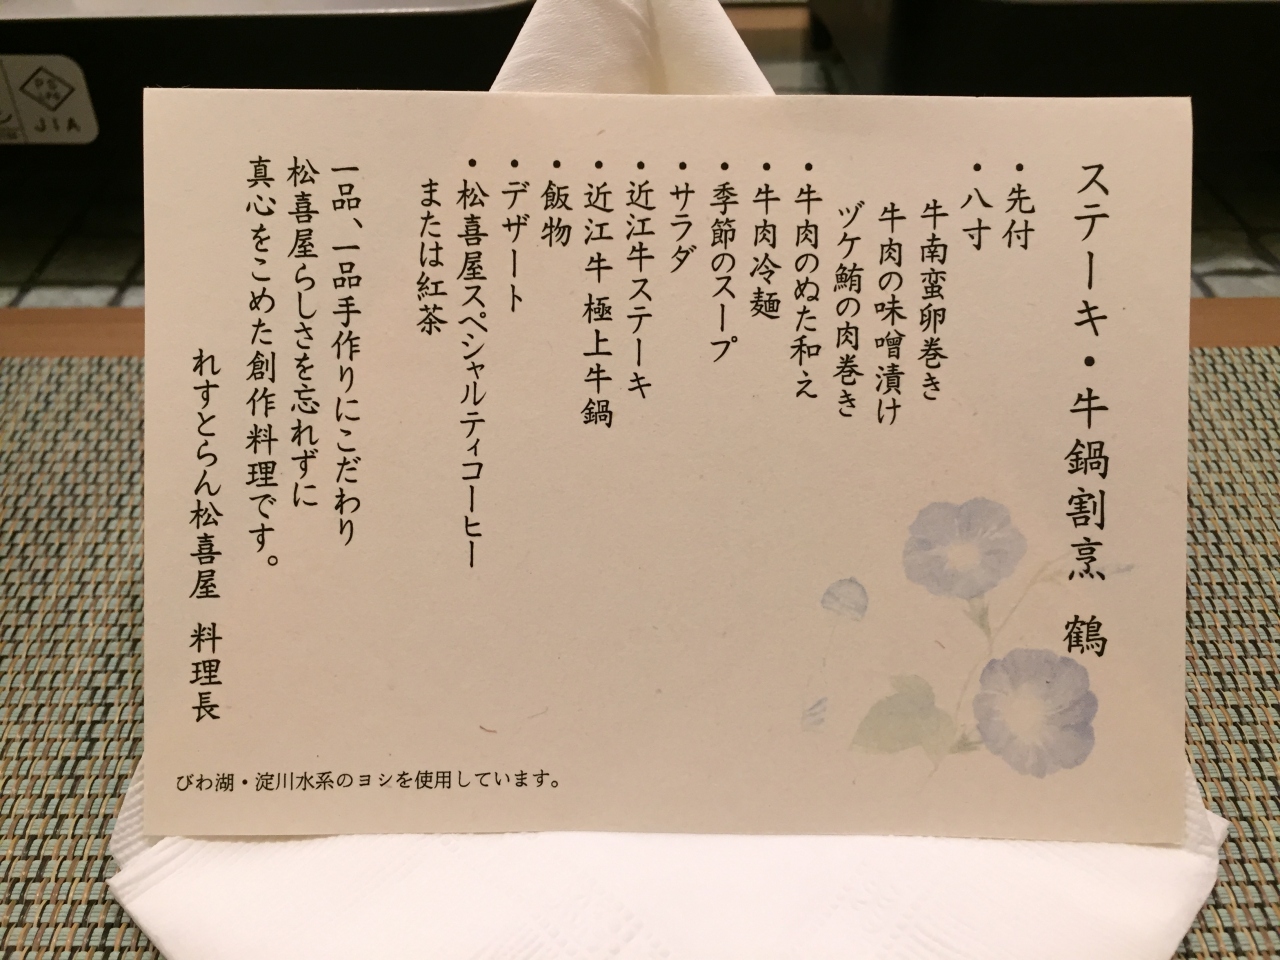 ステーキ・牛鍋割烹 鶴
・先付
・八寸
牛南蛮卵巻き
牛肉の味噌漬け
ヅケ鮪の肉巻き
・牛肉のぬた和え
・牛肉冷麺
・季節のスープ
・サラダ
・近江牛ステーキ
・近江牛 極上牛鍋
・飯物
・デザート
・松喜屋スペシャルティコーヒー
または紅茶
一品、一品手作りにこだわり
松喜屋らしさを忘れずに
真心をこめた創作料理です。
れすとらん松喜屋 料理長
びわ湖・淀川水系のヨシを使用しています。
PS
JIA